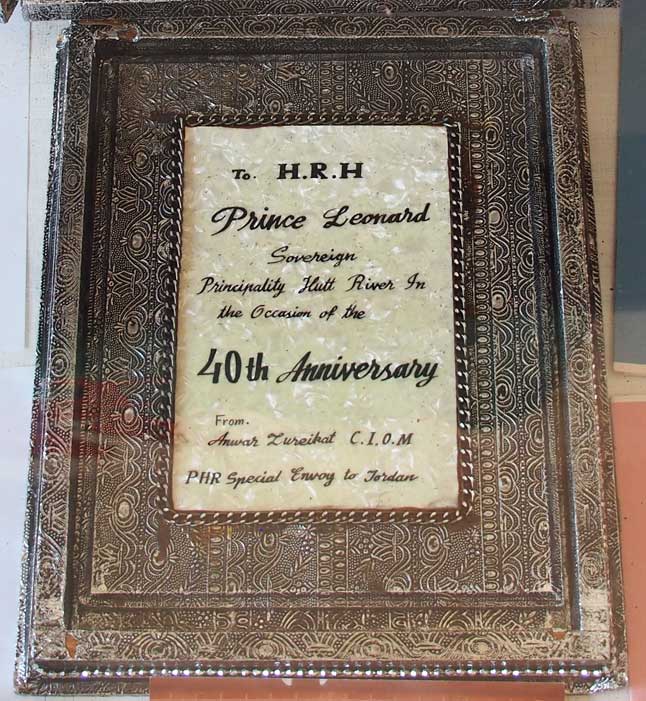 To. H.R.H
Prince Leonard
Sovereign
Principality Hutt River In
the Occasion of the
40th Anniversary
From.
Anwar Zureikat C.I.O.M
PHR Special Envoy to Jordan